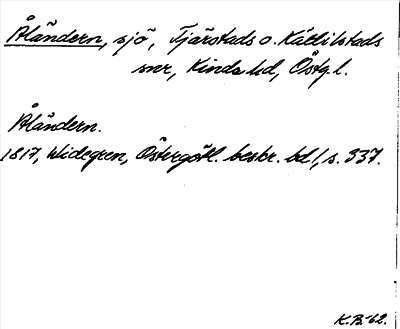 Åländern, sjö, Tjärstads o. Kättilstads
snr, Kinda hd, Östg. l.
Åländern.
1817, Widegren, Östergötl. beskr. bd 1, s. 337.
K.B-62.